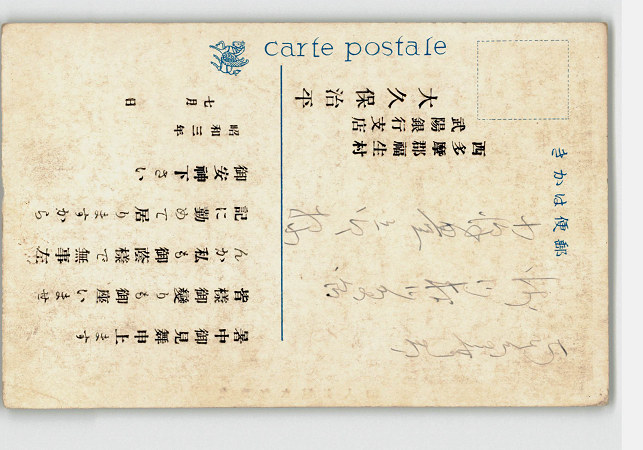 carte postale
郵便はかき
暑中御見舞申上ます
皆様御變りも御座いませ
んか私も御蔭様で無事左
記に勤めて居りますから
御安神下さい
昭和三年
七月 日
西多摩郡福生村
武陽銀行支店
大久保治平